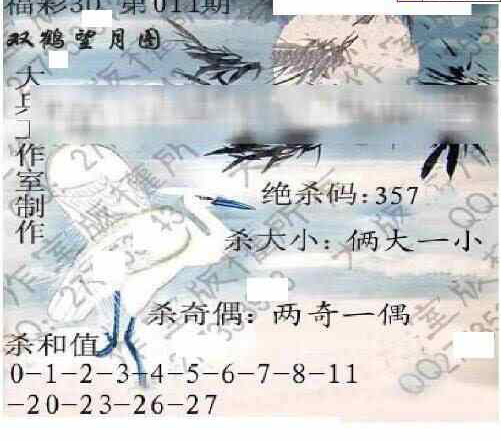 福彩3D 第011期
双鹤望月图
大兵工作室制作
绝杀码:357
杀大小: 俩大一小
杀奇偶: 两奇一偶
杀和值
0-1-2-3-4-5-6-7-8-11
-20-23-26-27